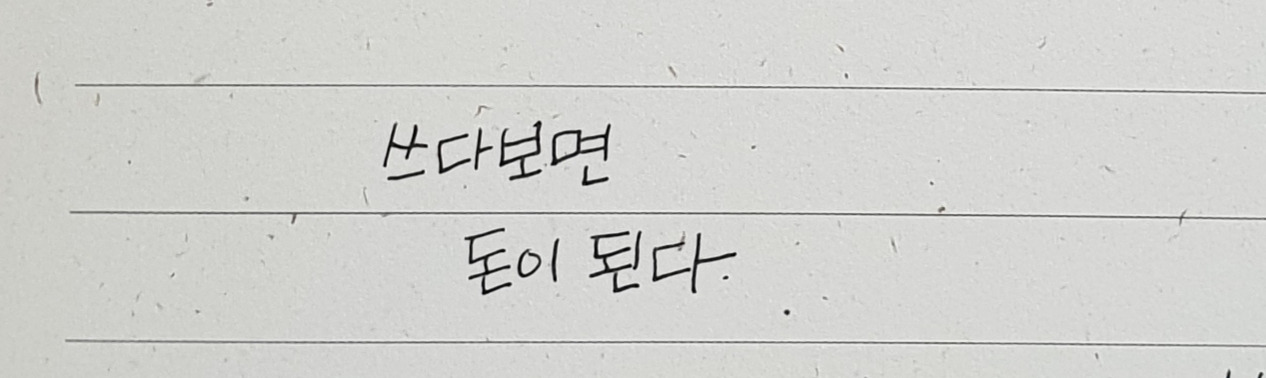 쓰다보면
돈이 된다.